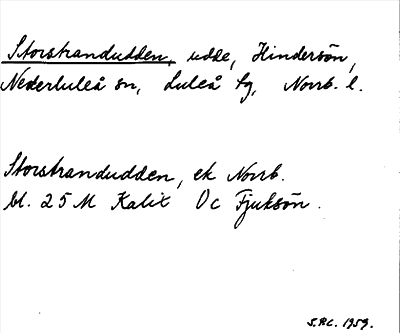 Storstrandudden, udde, Hindersön,
Nederluleå sn, Luleå tg, Norrb. l.
Storstrandudden, ek Norrb.
bl. 25 M Kalix Oc Fjuksön.
S.R.C. 1959.